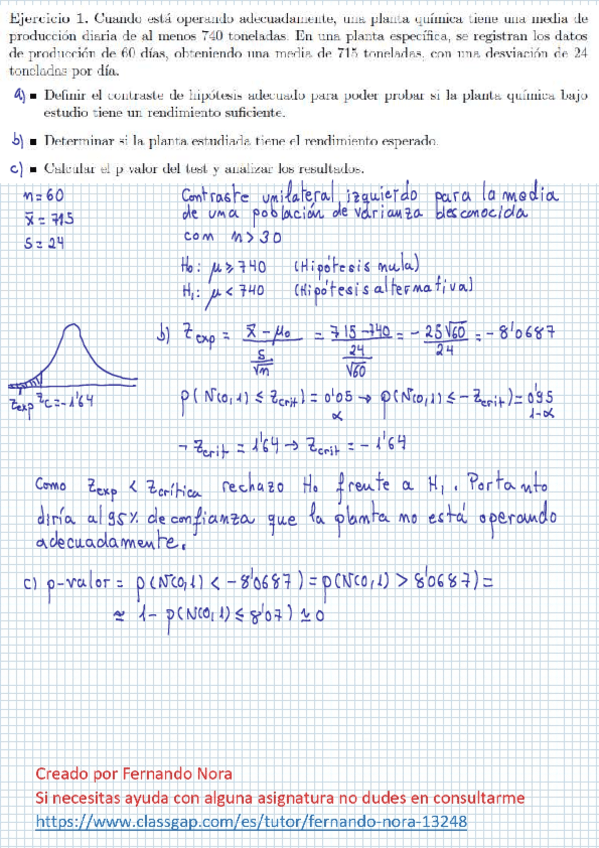 Ejercicio 1. Cuando está operando adecuadamente, una planta química tiene una media de
producción diaria de al menos 740 toneladas. En una planta específica, se registran los datos
de producción de 60 días, obteniendo una media de 715 toneladas, con una desviación de 24
toneladas por día.
a) ▪ Definir el contraste de hipótesis adecuado para poder probar si la planta química bajo
estudio tiene un rendimiento suficiente.
b) ▪ Determinar si la planta estudiada tiene el rendimiento esperado.
c) ▪ Calcular el p valor del test y analizar los resultados.
n=60
x̄=715
s=24
Contraste unilateral izquierdo para la media
de una población de varianza desconocida
con n>30
H₀: μ ≥ 740 (Hipótesis nula)
H₁: μ < 740 (Hipótesis alternativa)
b) Z_exp = (x̄ - μ₀)/(s/√n) = (715-740)/(24/√60) = -25√60/24 = -8'0687
Z_exp Z_C=-1'64
p(N(0,1) ≤ Z_crit) = 0'05 → p(N(0,1) ≤ -Z_crit) = 0'95
α 1-α
¬ Z_crit = 1'64 → Z_crit = -1'64
Como Z_exp < Z_crítica rechazo H₀ frente a H₁. Por tanto
diría al 95% de confianza que la planta no está operando
adecuadamente.
c) p-valor = p(N(0,1) < -8'0687) = p(N(0,1) > 8'0687) =
≃ 1- p(N(0,1) ≤ 8'07) ≃ 0
Creado por Fernando Nora
Si necesitas ayuda con alguna asignatura no dudes en consultarme
https://www.classgap.com/es/tutor/fernando-nora-13248